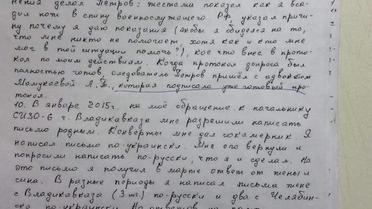 нения делал Петров: жестами показал как я вса-
дил ночи в спину военнослужащего РФ, указал причи-
ну почему я даю показания (якобы я обиделся на то,
что мне никто не помогает, хотя как и кто мне
мог в той ситуации помочь?), кое что внес в прото-
кол по моим действиям. Когда протокол допроса был
полностью готов, следователь Петров пришёл с адвокатом
которая подписала уже готовый про-
токол.
10. В январе 2015г. на моё обращение к начальнику
СИЗО-6 г. Владикавказа мне разрешили написать
письмо родным. Конверты мне дал сокамерник. Я
написал письмо по-украински. Мне его вернули и
попросили написать по-русски, что я и сделал. На
это письмо я получил в марте ответ от жены и
сына. В разные периоды я написал письма жене
с Владикавказа (3 шт.) по-русски и два с Челябин-
ска по-украински.